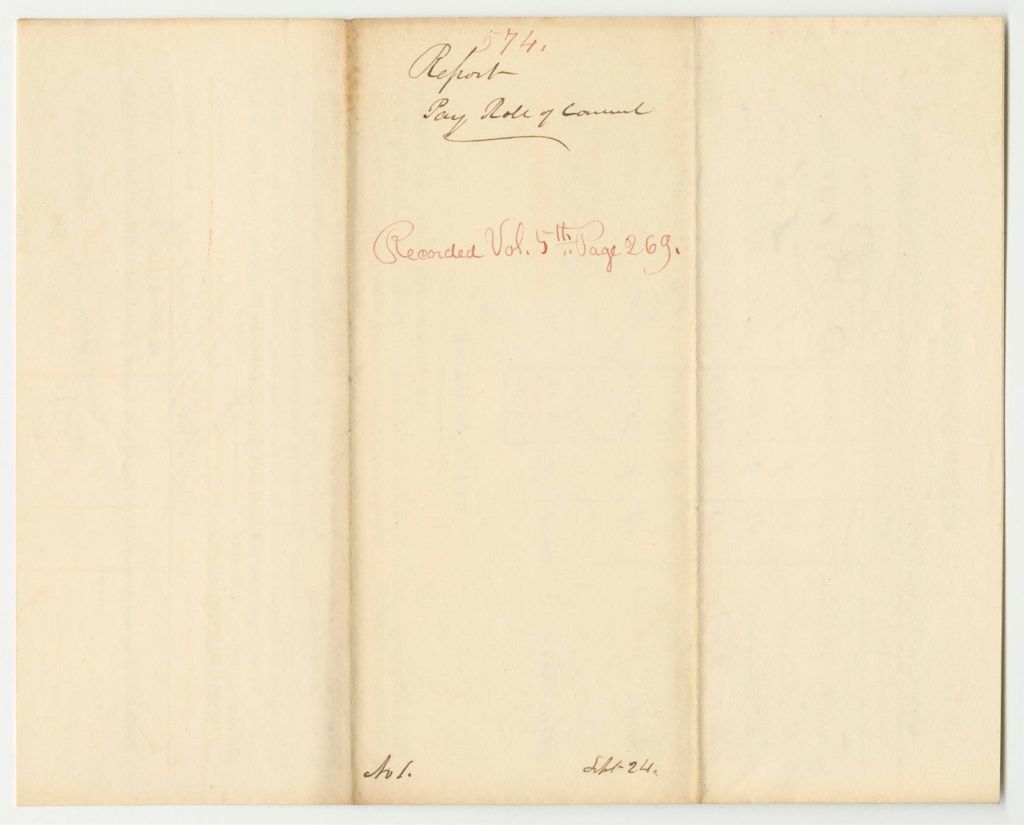 574.
Report
Pay Roll of Council
Recorded Vol. 5th Page 269.
No 1. Sept 24.